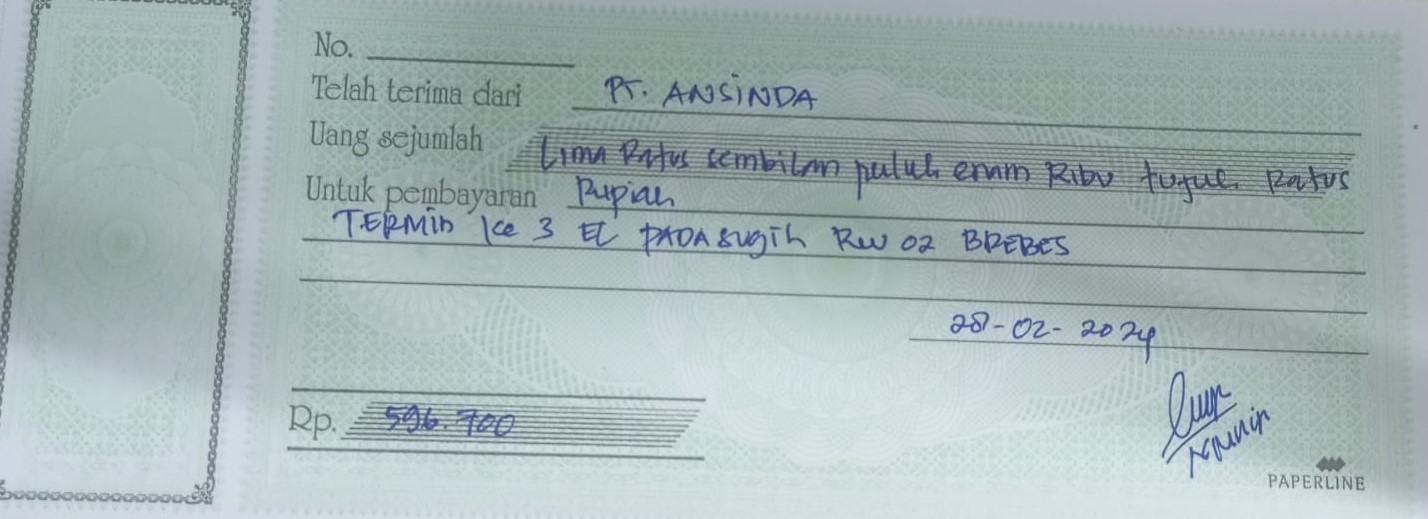 No.
Telah terima dari PT. ANSINDA
Uang sejumlah Lima Ratus sembilan puluh enam Ribu tujuh Ratus
Untuk pembayaran Rupiah
TERMIN ke 3 EC PADASUGIH RW 02 BREBES
28-02-2024
Rp. 596.700
PAPERLINE